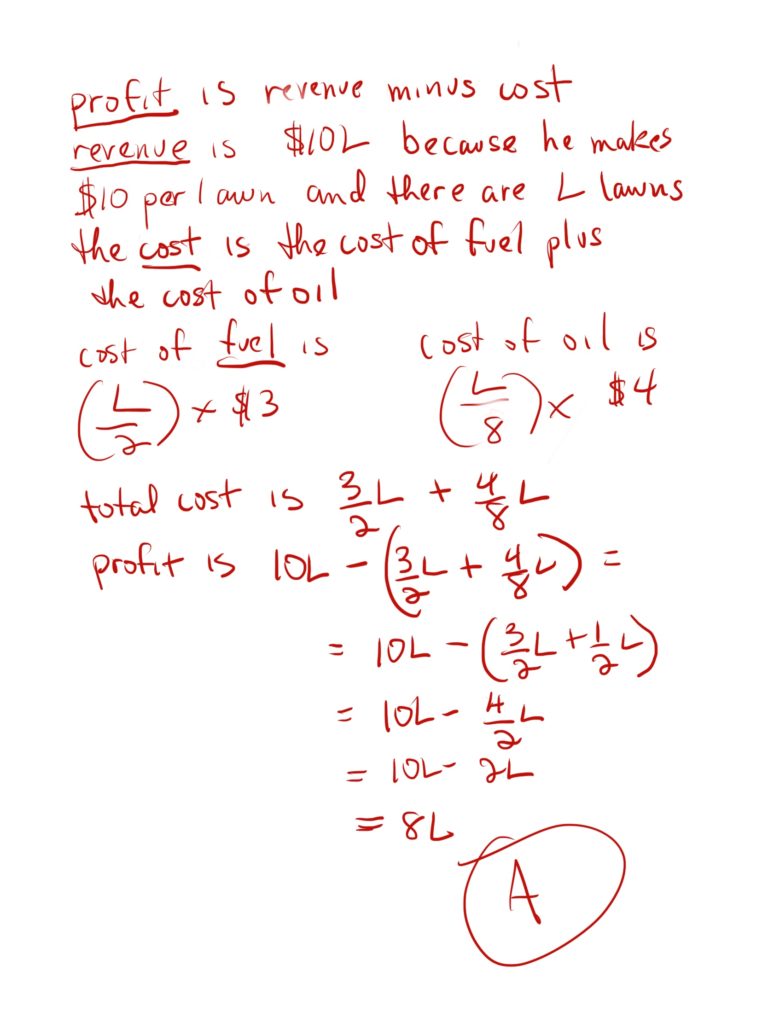 profit is revenue minus cost
revenue is $10L because he makes
$10 per lawn and there are L lawns
the cost is the cost of fuel plus
the cost of oil
cost of fuel is cost of oil is
(L/2) × $3 (L/8) × $4
total cost is 3/2 L + 4/8 L
profit is 10L - (3/2 L + 4/8 L) =
= 10L - (3/2 L + 1/2 L)
= 10L - 4/2 L
= 10L - 2L
= 8L
A